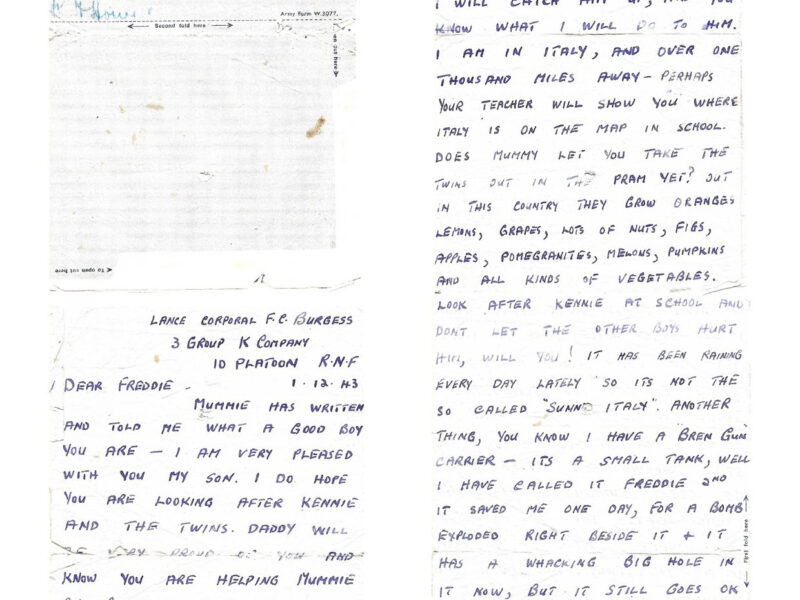 Army Form W.3077.
Second fold here
To open cut here
LANCE CORPORAL F.C. BURGESS
3 GROUP K COMPANY
10 PLATOON R.N.F
DEAR FREDDIE. 1.12.43
MUMMIE HAS WRITTEN
AND TOLD ME WHAT A GOOD BOY
YOU ARE — I AM VERY PLEASED
WITH YOU MY SON. I DO HOPE
YOU ARE LOOKING AFTER KENNIE
AND THE TWINS. DADDY WILL
BE VERY PROUD OF YOU AND
KNOW YOU ARE HELPING MUMMIE
I WILL CATCH HIM UP, AND YOU
KNOW WHAT I WILL DO TO HIM.
I AM IN ITALY, AND OVER ONE
THOUSAND MILES AWAY — PERHAPS
YOUR TEACHER WILL SHOW YOU WHERE
ITALY IS ON THE MAP IN SCHOOL.
DOES MUMMY LET YOU TAKE THE
TWINS OUT IN THE PRAM YET? OUT
IN THIS COUNTRY THEY GROW ORANGES
LEMONS, GRAPES, LOTS OF NUTS, FIGS,
APPLES, POMEGRANITES, MELONS, PUMPKINS
AND ALL KINDS OF VEGETABLES.
LOOK AFTER KENNIE AT SCHOOL AND
DONT LET THE OTHER BOYS HURT
HIM, WILL YOU! IT HAS BEEN RAINING
EVERY DAY LATELY SO ITS NOT THE
SO CALLED "SUNNY ITALY". ANOTHER
THING, YOU KNOW I HAVE A BREN GUN
CARRIER — ITS A SMALL TANK, WELL
I HAVE CALLED IT FREDDIE 2ND
IT SAVED ME ONE DAY, FOR A BOMB
EXPLODED RIGHT BESIDE IT & IT
HAS A WHACKING BIG HOLE IN
IT NOW, BUT IT STILL GOES OK
First fold here